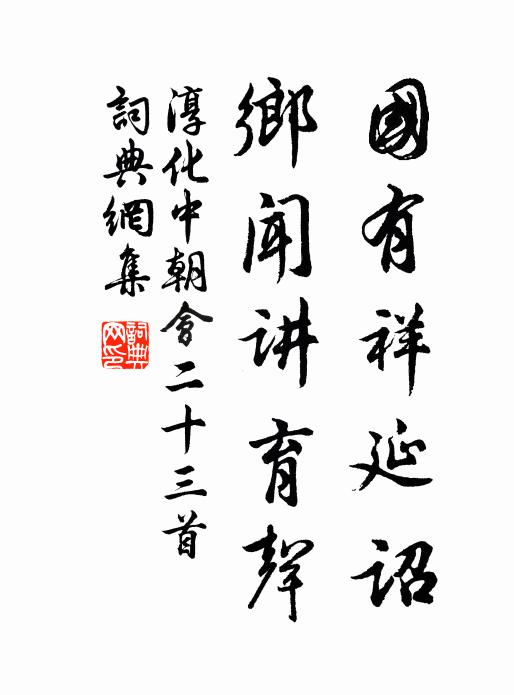 國有祥延詔
鄉闻讲育聲
淳化中朝會二十三首
詞典網集
詞典网印